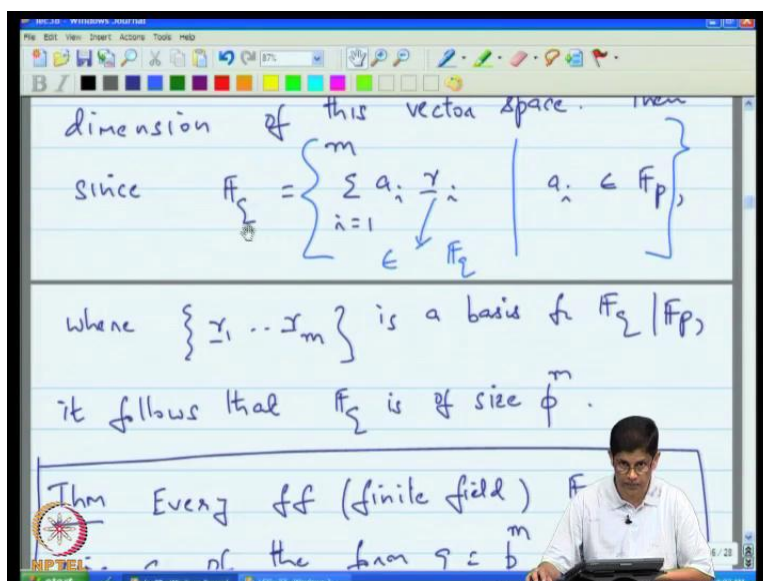 lec.38 - Windows Journal
File Edit View Insert Actions Tools Help
87%
B I
dimension of this vector space. Then
since F_q = { m Σ i=1 a_i γ_i | a_i ∈ F_p, }
∈ F_q
where { γ_1 .. γ_m } is a basis for F_q | F_p,
it follows that F_q is of size p^m.
Thm Every ff (finite field) F
of the form q = p^m
NPTEL
6 / 28